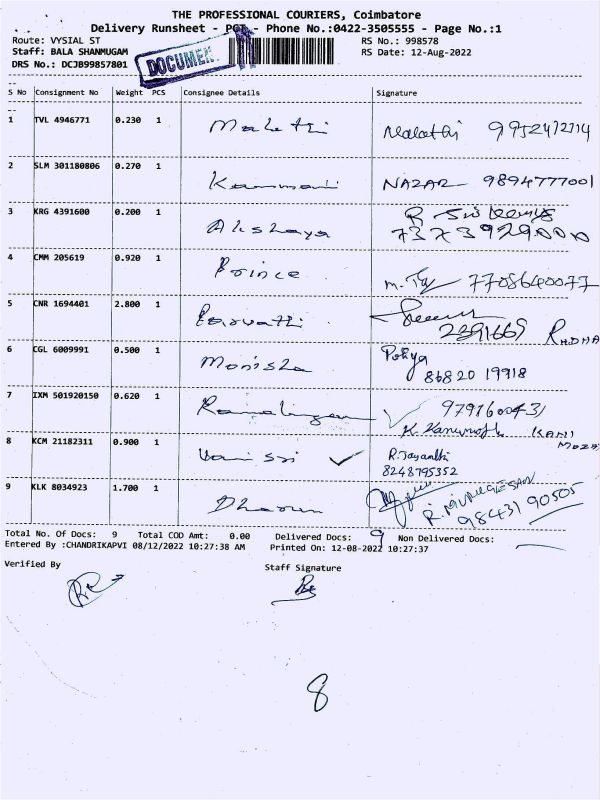 THE PROFESSIONAL COURIERS, Coimbatore
Delivery Runsheet - POD - Phone No.:0422-3505555 - Page No.:1
Route: VYSIAL ST RS No.: 998578
Staff: BALA SHANMUGAM RS Date: 12-Aug-2022
DRS No.: DCJB99857801
DOCUMEN
S No Consignment No Weight PCS Consignee Details Signature
1 TVL 4946771 0.230 1 Malathi Malathi
2 SLM 301180806 0.270 1 NAZAR 9894777001
3 KRG 4391600 0.200 1 Akshaya
7373929000
4 CMM 205619 0.920 1 Prince 7708640077
5 CNR 1694401 2.800 1 Parvathi 2391669
6 CGL 6009991 0.500 1 Monisha
86820 19918
7 IXM 501920150 0.620 1 Ramalingam
8 KCM 21182311 0.900 1 R.Jayanthi
8248795352
9 KLK 8034923 1.700 1 Dharun R. MURUGESAN
98431 90505
Total No. Of Docs: 9 Total COD Amt: 0.00 Delivered Docs: 9 Non Delivered Docs:
Entered By :CHANDRIKAPVI 08/12/2022 10:27:38 AM Printed On: 12-08-2022 10:27:37
Verified By Staff Signature
8